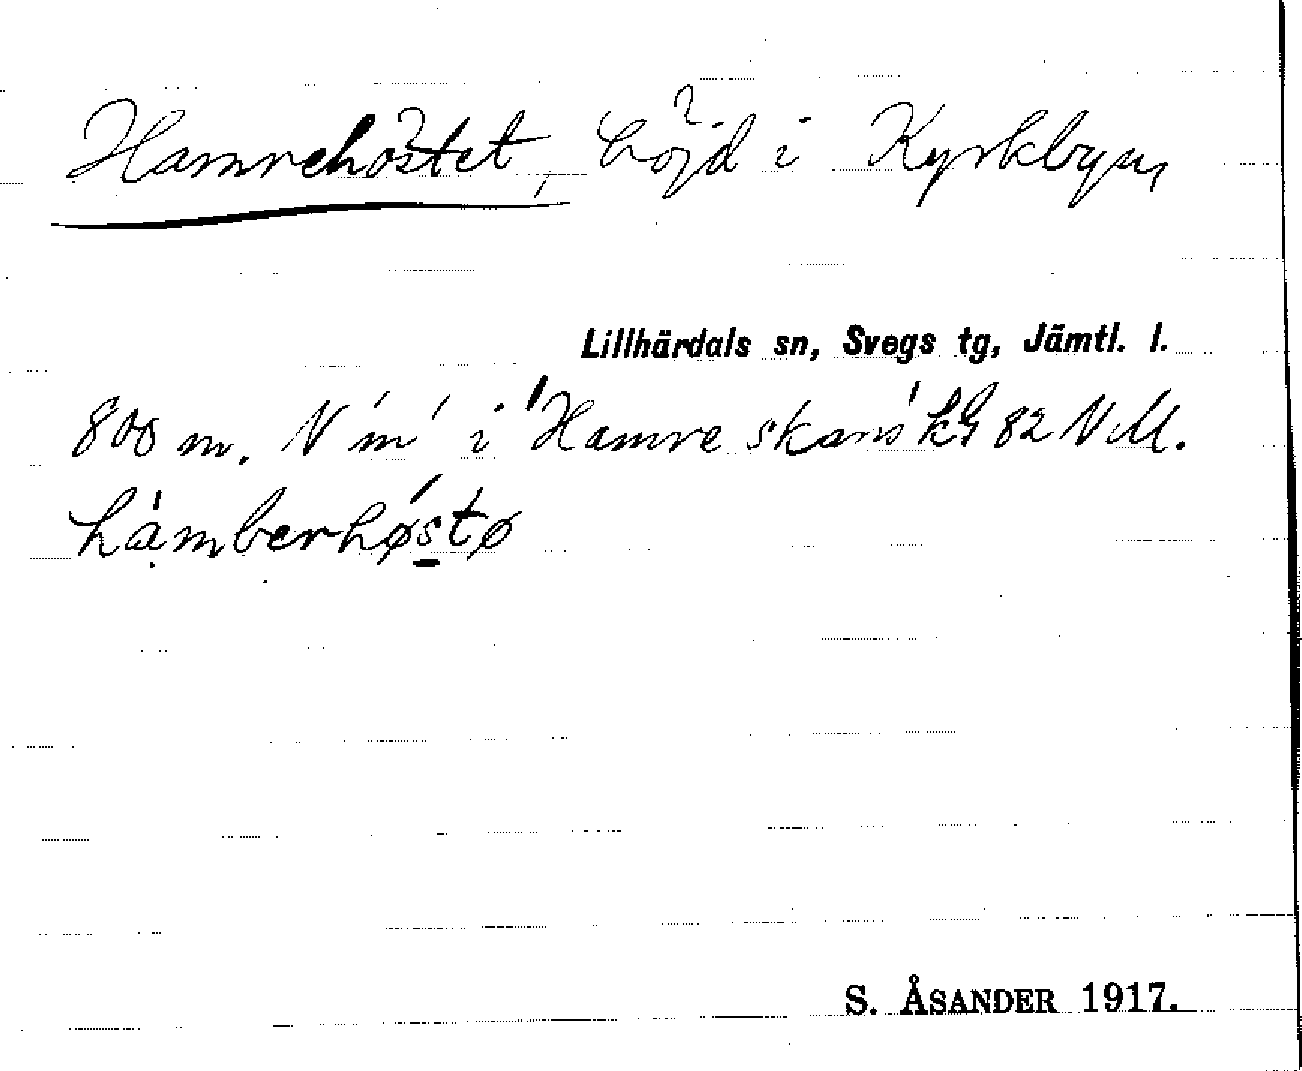 Hamrehöstet, höjd i Kyrkbyn,
Lillhärdals sn, Svegs tg, Jämtl. l.
800 m. N 'm' i 'Hamre skans' kg 82 NM.
håmberhøstø
S. ÅSANDER 1917.